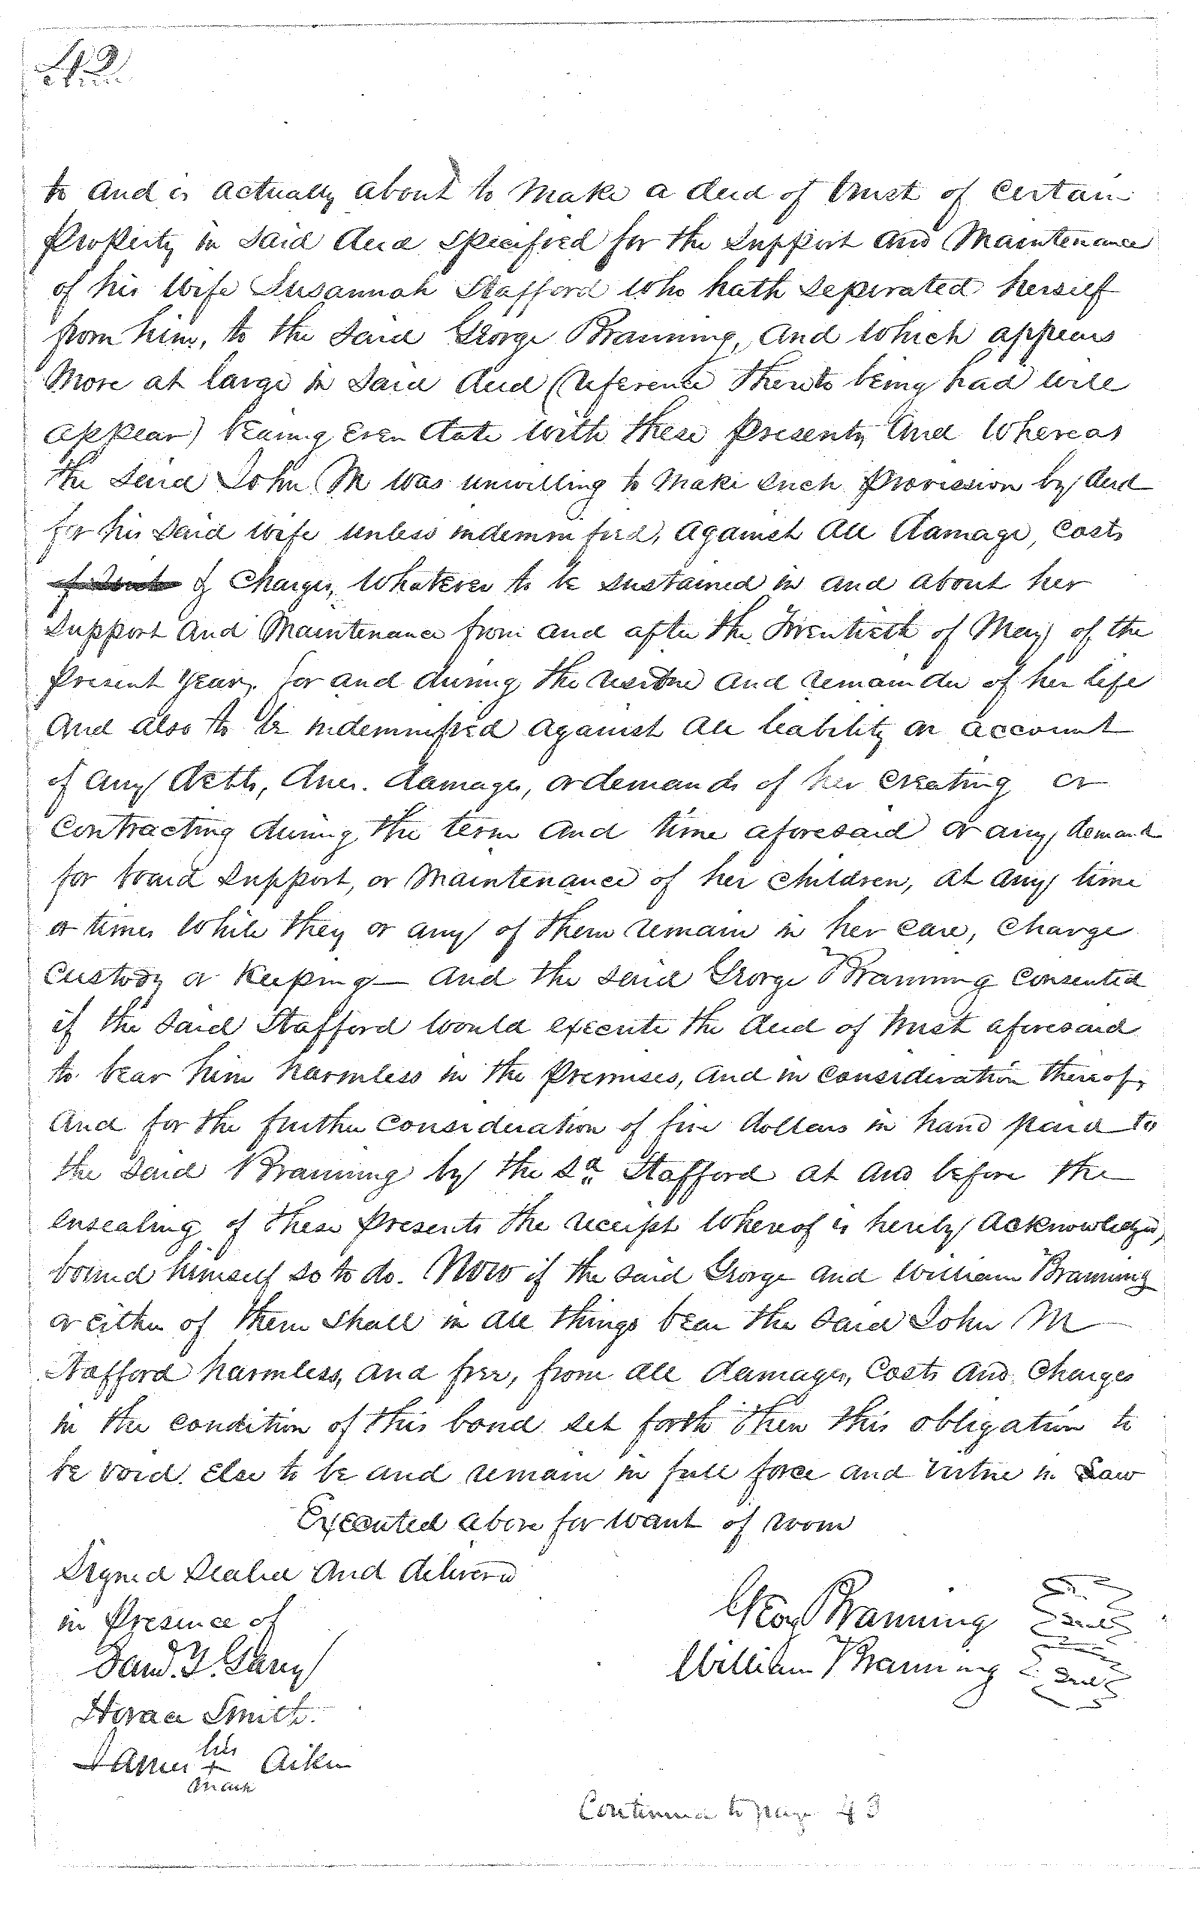 42
to and is actually about to make a deed of trust of certain
Property in said deed specified for the support and Maintenance
of his Wife Susannah Stafford who hath seperated herself
from him, to the said George Branning, and which appears
More at large in said deed (reference thereto being had will
appear) bearing even date with these presents, And Whereas
the said John M was unwilling to make such Provission by deed
for his said wife unless indemnified, against all damage, Costs
& Charges, Whatever to be sustained in and about her
Support and Maintenance from and after the Twentieth of May of the
Present Year, for and during the residue and remainder of her life
And also to be indemnified against all liability on account
of any debts, dues. damages, or demands of her creating or
Contracting during the term and time aforesaid or any demand
for board support, or Maintenance of her children, at any time
or times While they or any of them remain in her care, charge
Custody or Keeping— and the said George Branning consented
if the said Stafford would execute the deed of trust aforesaid
to bear him harmless in the premises, and in consideration thereof,
and for the further consideration of five dollars in hand paid to
the said Branning by the Sd Stafford at and before the
ensealing of these presents the receipt Whereof is hereby acknowledged,
bound himself so to do. Now if the said George and William Branning
or either of them shall in all things bear the said John M
Stafford harmless, and free, from all damages, Costs and Charges
in the condition of this bond set forth then this obligation to
be void. Else to be and remain in full force and virtue in Law
Executed above for want of room
Signed Sealed and delivered
in Presence of
Geo Branning Seal
William Branning Seal
Horace Smith.
James his + mark Aiken
Continued to page 43